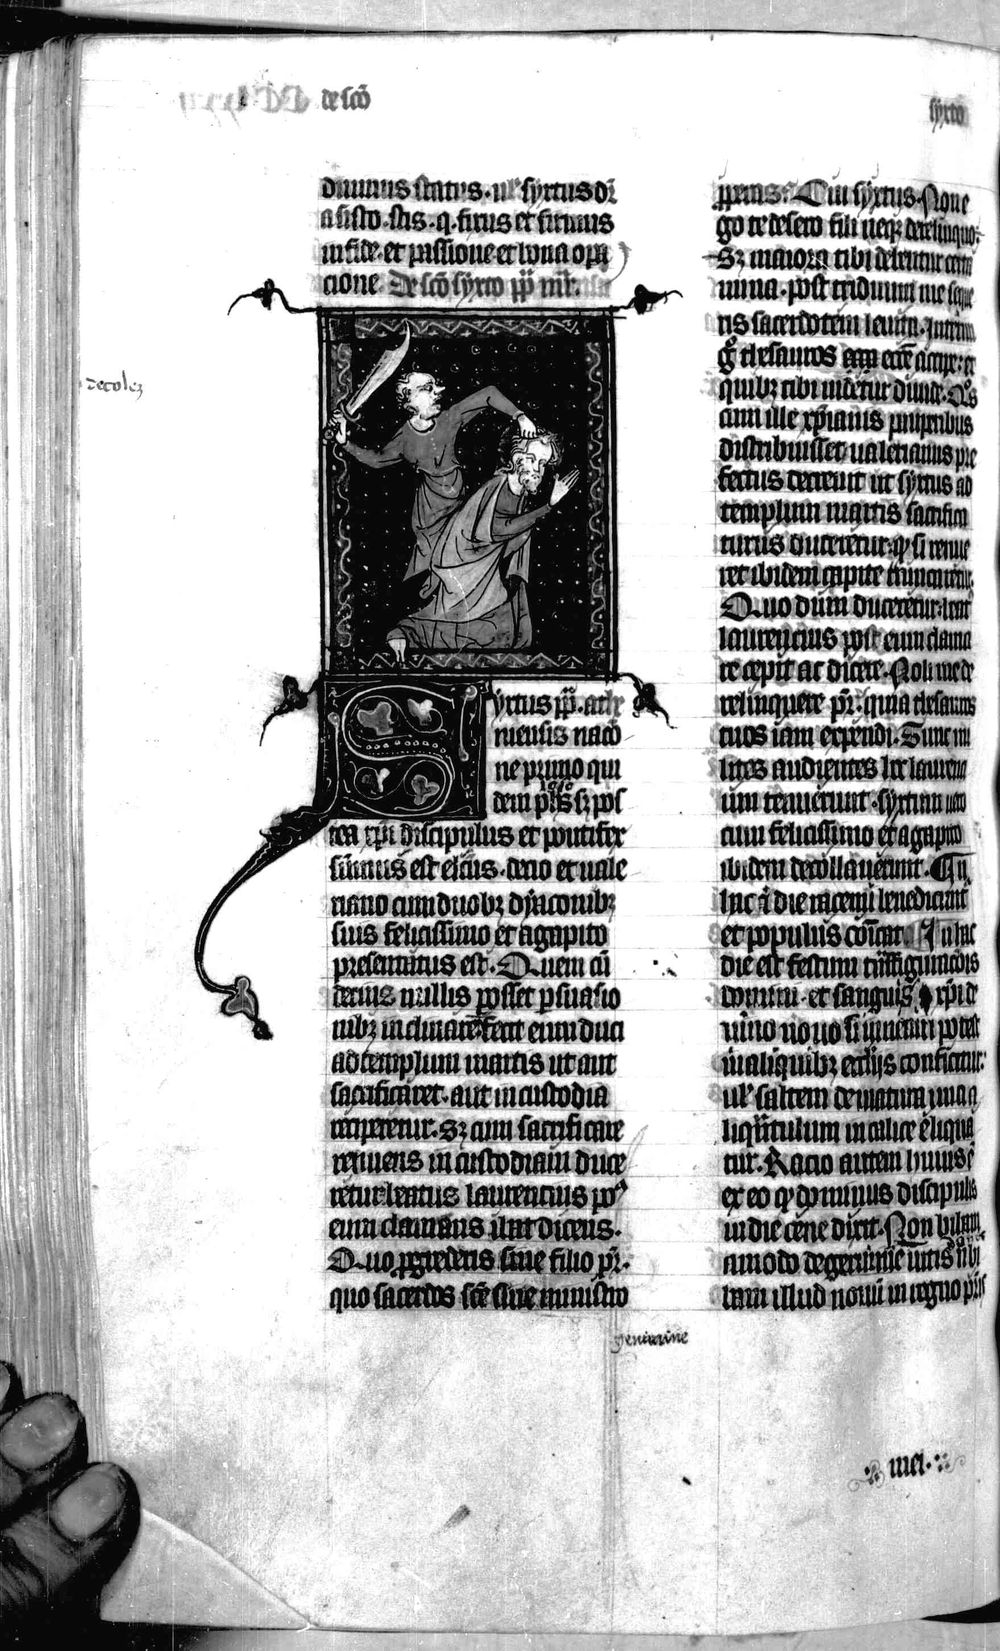 de scō
syxto
diuinus status. ul' syxtus dr̄
a sisto. stis. q. fixus et firmus
in fide. et passione et bona opa
cione. De scō syxto pp̄ mr̄.
decolez
Syxtus pp̄. athe
niensis nacō
ne primo qui
dem ph̄s sz pos
tea xp̄i discipulus et pontifex
sūmus est elcūs. decio et uale
riano cum duobz dyaconibz
suis felicissimo et agapito
presentatus est. Quem cū
decius nullis posset p suasio
nibz inclinare. fecit eum duci
ad templum martis ut aut
sacrificaret. aut in custodia
reciperetur. Sz cum sacrificare
renuens in custodiam duce
retur. beatus laurencius po
eum clamans ibat dicens.
Quo pgrederis sine filio pr̄.
quo sacerdos scē sine ministro
geniturine
pperas. Cui syxtus. Non e
go te desero fili neqz derelinquo.
Sz maiora tibi debentur certa
mina. post triduum me seque
ris sacerdotem leuita. Interim
g° thesauros eccē accipe. et
quibz tibi uidetur diuide. Qos
cum ille xp̄ianis pauperibus
distribuisset. ualerianus pre
fectus decreuit ut syxtus ad
templum martis sacrifica
turus duceretur. qd si renue
ret ibidem capite truncaretur.
Quo dum duceretur. beat
laurencius post eum clama
re cepit ac dicere. Noli me de
relinquere pr̄. quia thesauros
tuos iam expendi. Tunc mi
lites audientes hec laurenci
um tenuerunt. syxtum uero
cum felicissimo et agapito
ibidem decollauerunt.
hac die racemi benedicunt
et populus cōicat. In hac
die est festum transfiguracōis
domini. et sanguis xp̄i de
uino nouo si inueniri potest
in aliquibz ecclīis conficitur.
ul' saltem de matura uua a
liquantulum in calice eliqua
tur. Racio autem huius ē
ex eo qd dominus discipulis
in die cene dixit. Non bibam
amodo de genimine uitis
bam illud nouū in regno pr̄is
mei.